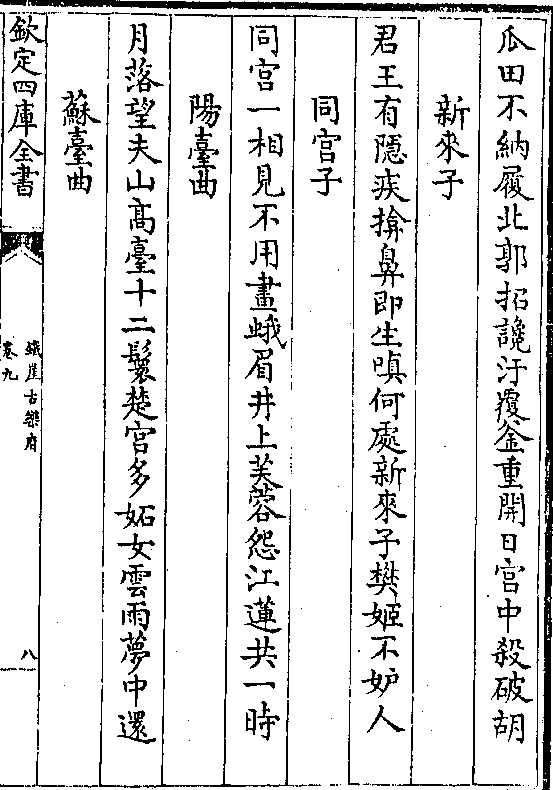 瓜田不納履北郭招讒汙覆釡重開日宫中殺破胡
新來子
君王有隱疾揜鼻即生嗔何處新來子樊姬不妒人
同宫子
同宫一相見不用畫蛾眉井上芙蓉怨江蓮共一時
陽臺曲
月落望夫山髙臺十二鬟楚宫多妬女雲雨夢中還
蘇臺曲
欽定四庫全書
鐵崖古樂府
卷九
八